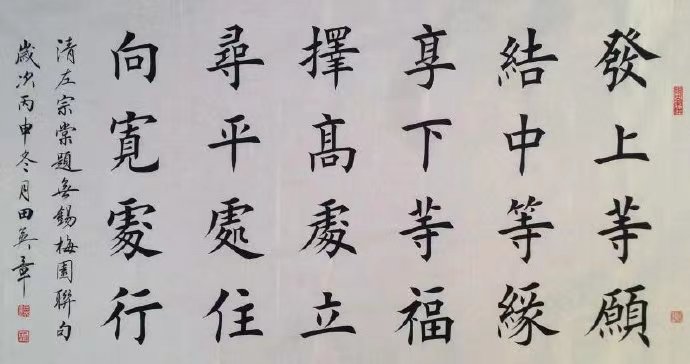 發上等願
結中等緣
享下等福
擇高處立
尋平處住
向寬處行
清左宗棠題無錫梅園聯句
歲次丙申冬月田英章